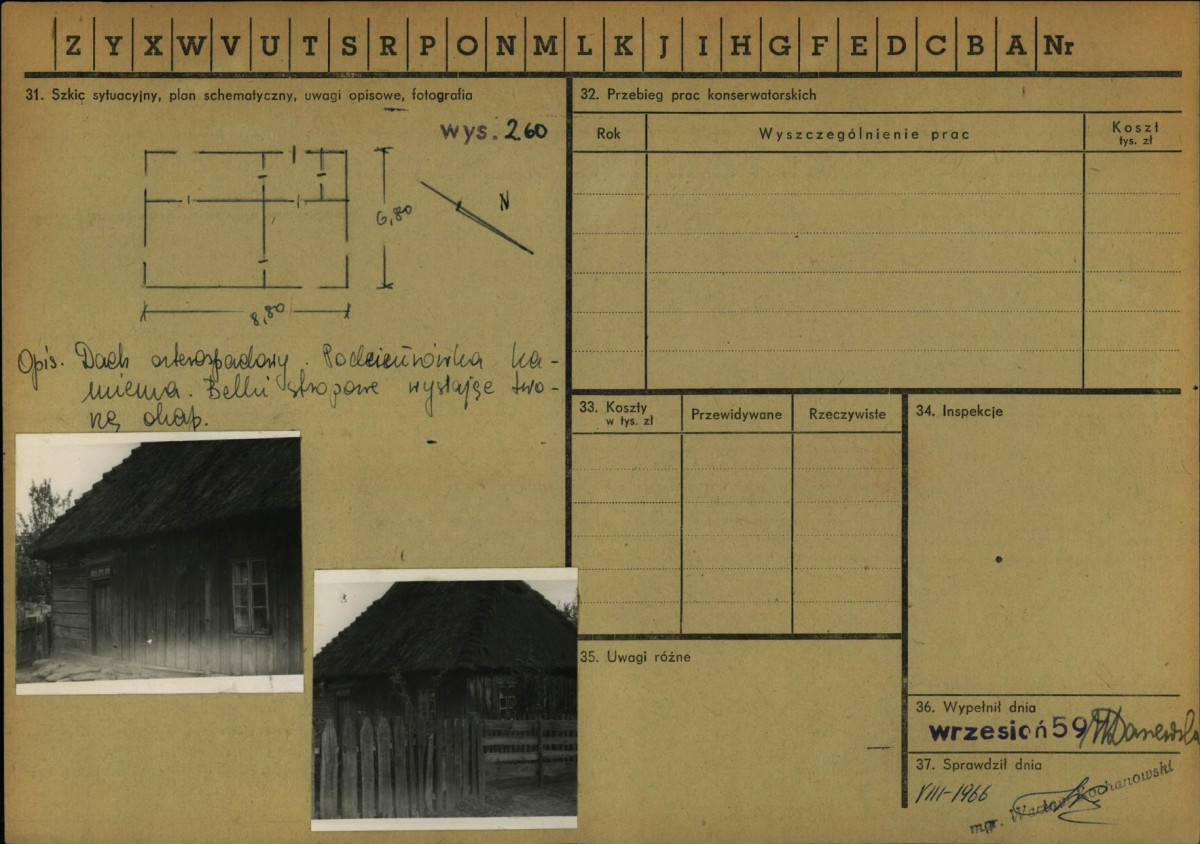 Z Y X W V U T S R P O N M L K J I H G F E D C B A Nr
31. Szkic sytuacyjny, plan schematyczny, uwagi opisowe, fotografia
wys. 2.60
N
6,80
8,80
Opis. Dach czterospadowy. Podcieniówka ka-
mienna. Belki stropowe wystające two-
rzą okap.
32. Przebieg prac konserwatorskich
Rok
Wyszczególnienie prac
Koszt
tys. zł
33. Koszty
w tys. zł
Przewidywane
Rzeczywiste
34. Inspekcje
35. Uwagi różne
36. Wypełnił dnia
wrzesień 59
37. Sprawdził dnia
VIII-1966
mgr. Wacław Kochanowski